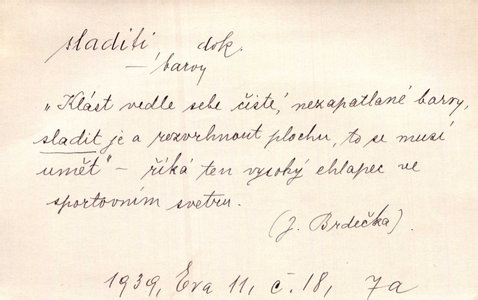 sladiti, dok.
– barvy
„Klást vedle sebe čisté, nezapatlané barvy,
sladit je a rozvrhnout plochu, to se musí
umět" – říká ten vysoký chlapec ve
sportovním svetru.
(J. Brdečka).
1939, Eva 11, č. 18, 7a